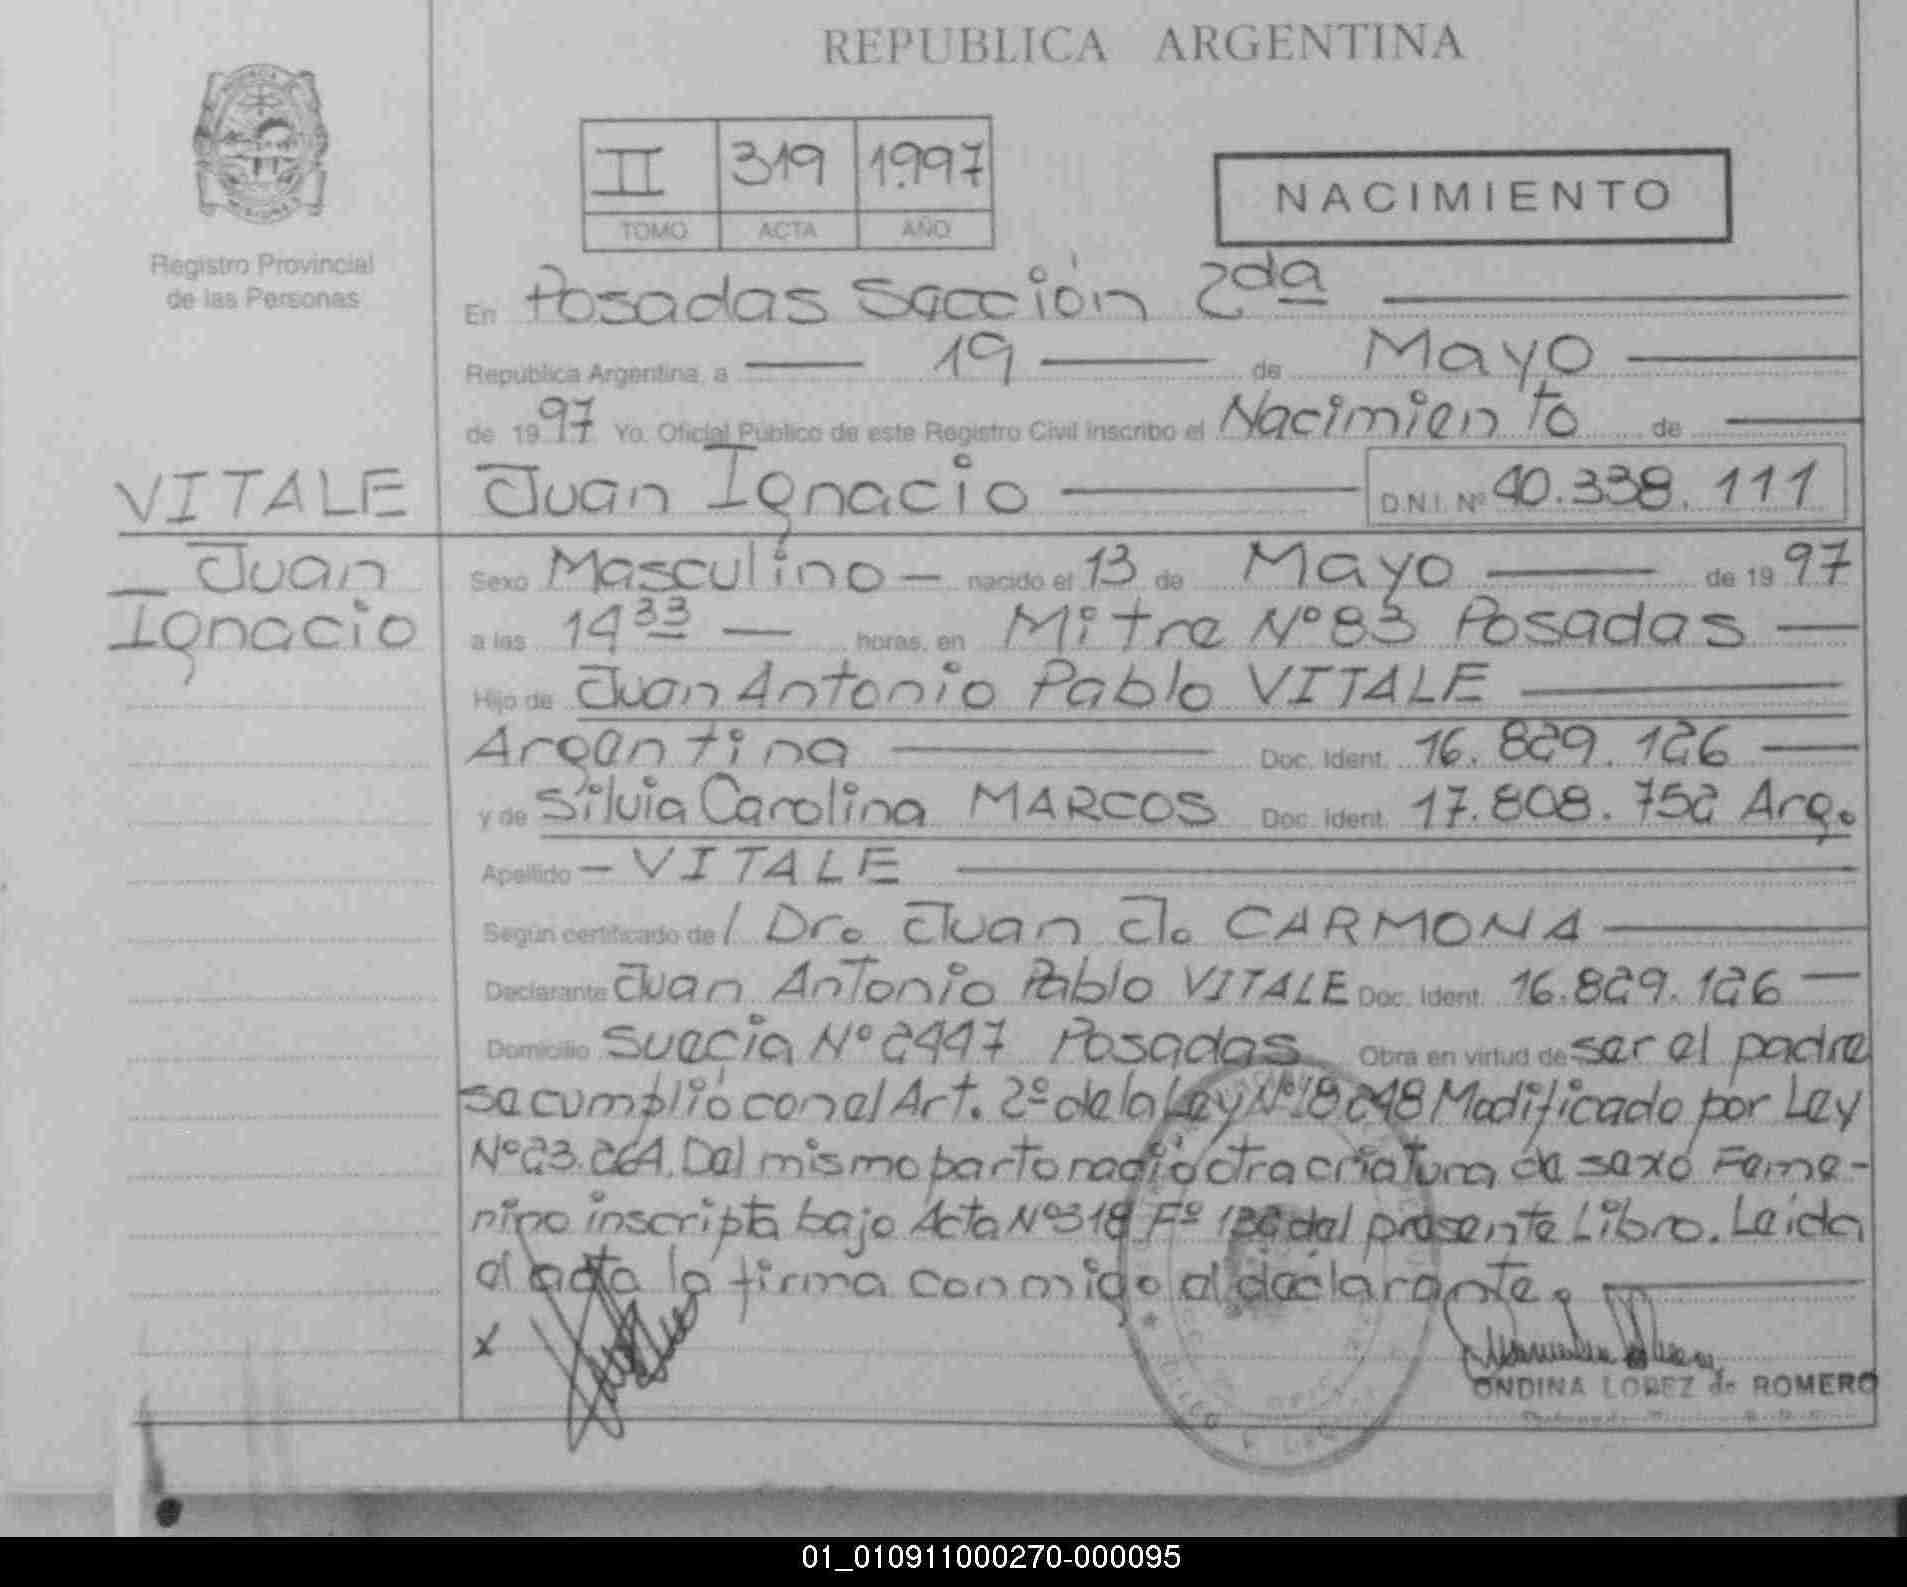 REPUBLICA ARGENTINA
II 319 1.997
TOMO ACTA AÑO
NACIMIENTO
Registro Provincial
de las Personas
En Posadas Sección 2da
República Argentina, a 19 de Mayo
de 1997 Yo. Oficial Público de este Registro Civil inscribo el Nacimiento de
VITALE Juan Ignacio D.N.I. Nº 40.338.111
Juan
Ignacio
Sexo Masculino nacido el 13 de Mayo de 1997
a las 14 33 horas, en Mitre Nº 83 Posadas
Hijo de Juan Antonio Pablo VITALE
Argentina Doc. Ident. 16.829.126
y de Silvia Carolina MARCOS Doc. Ident. 17.808.752 Arg.
Apellido VITALE
Según certificado de / Dr. Juan J. CARMONA
Declarante Juan Antonio Pablo VITALE Doc. Ident. 16.829.126
Domicilio Suecia Nº 2447 Posadas Obra en virtud de ser el padre
se cumplió con el Art. 2º de la Ley Nº 18248 Modificado por Ley
Nº 23.264. Del mismo parto nació otra criatura de sexo Feme-
nino inscripta bajo Acta Nº 318 Fº del presente Libro. Leída
el acta la firma conmigo el declarante.
x
ONDINA LOPEZ de ROMERO
01_010911000270-000095